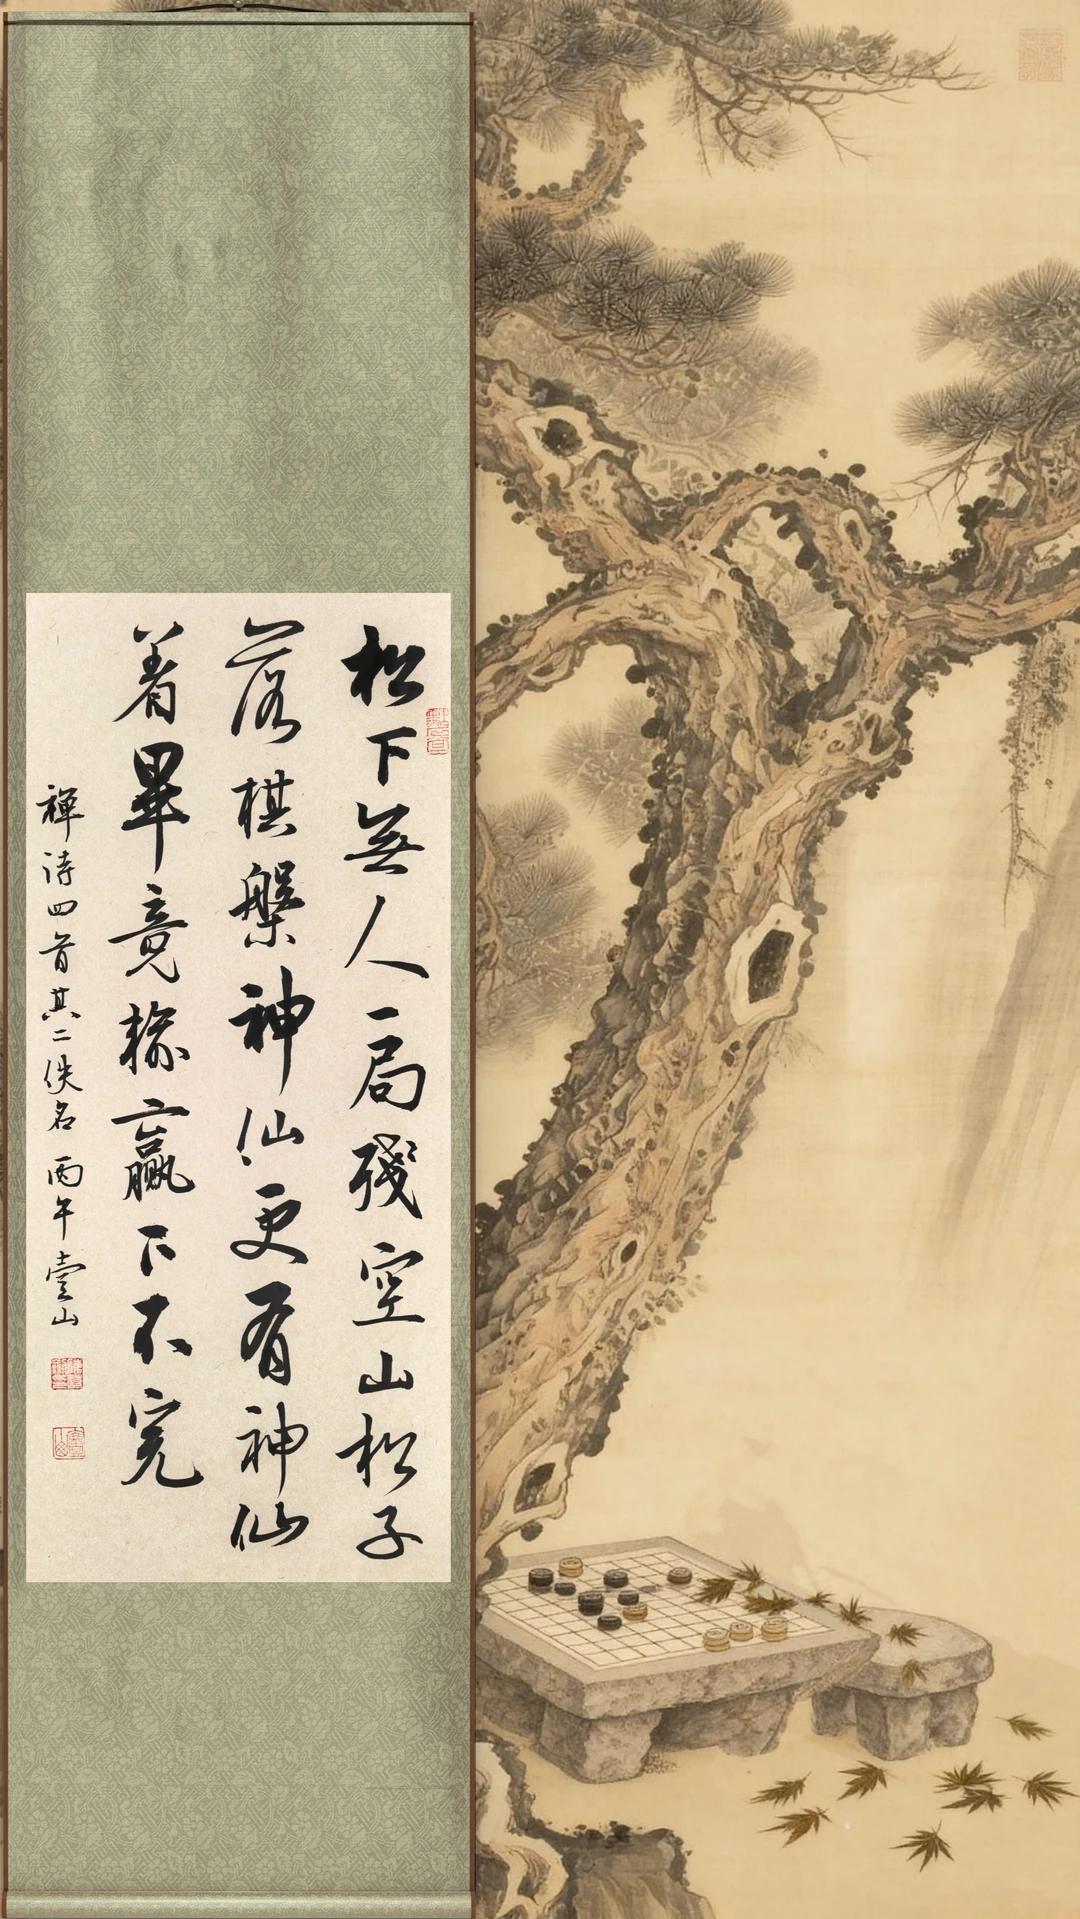 松下無人一局殘空山松子
落棋盤神仙更有神仙
着畢竟輸贏下不完
禪诗四首其二佚名 丙午壹山